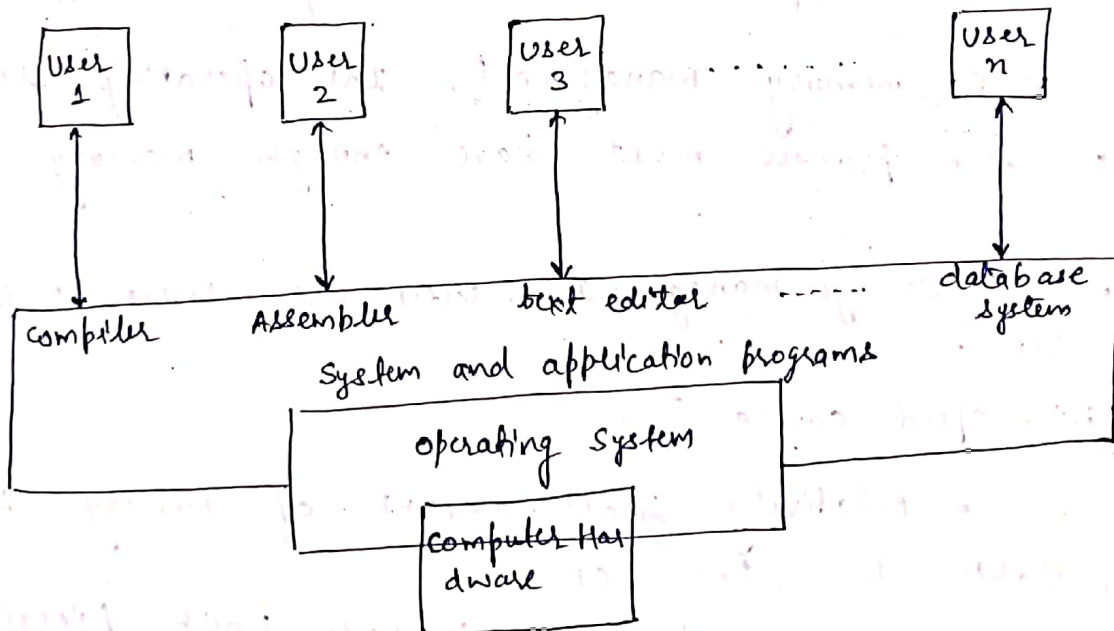 User
1
User
2
User
3
........
User
n
compiler
Assembler
text editor
......
database
system
System and application programs
operating system
Computer Har
dware